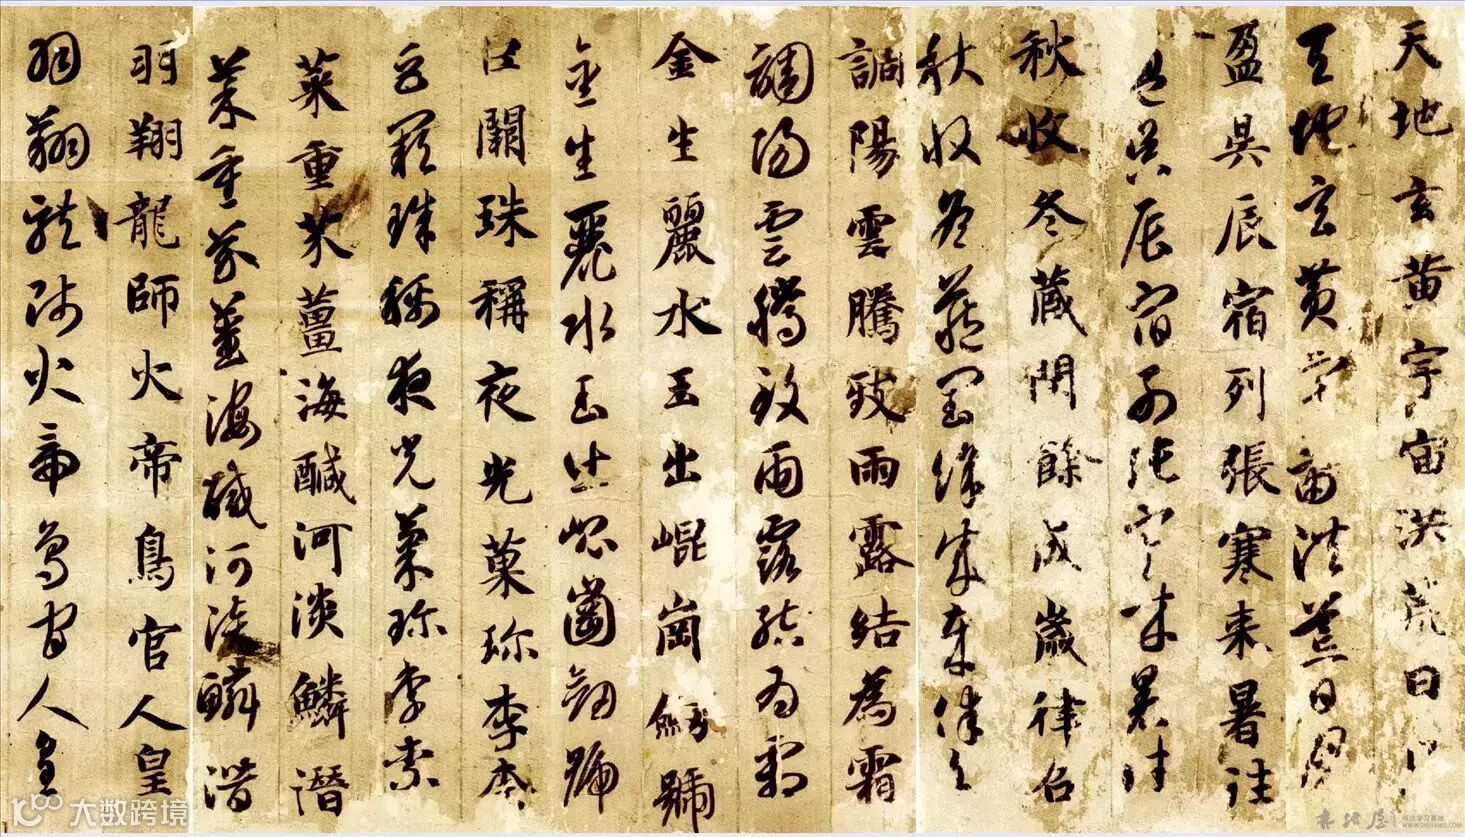 天地玄黄宇宙洪荒日月
天地玄黄宇宙洪荒日月
盈昃辰宿列張寒来暑往
盈昃辰宿列張寒来暑往
秋收冬藏閏餘成歲律召
秋收冬藏閏餘成歲律召
調陽雲騰致雨露結為霜
調陽雲騰致雨露結為霜
金生麗水玉出崐崗劒號
金生麗水玉出崐崗劒號
巨闕珠稱夜光菓珍李柰
巨闕珠稱夜光菓珍李柰
菜重芥薑海鹹河淡鱗潛
菜重芥薑海鹹河淡鱗潛
羽翔龍師火帝鳥官人皇
羽翔龍師火帝鳥官人皇
大数跨境
书法学习基地
WWW.SHUFAWU.COM